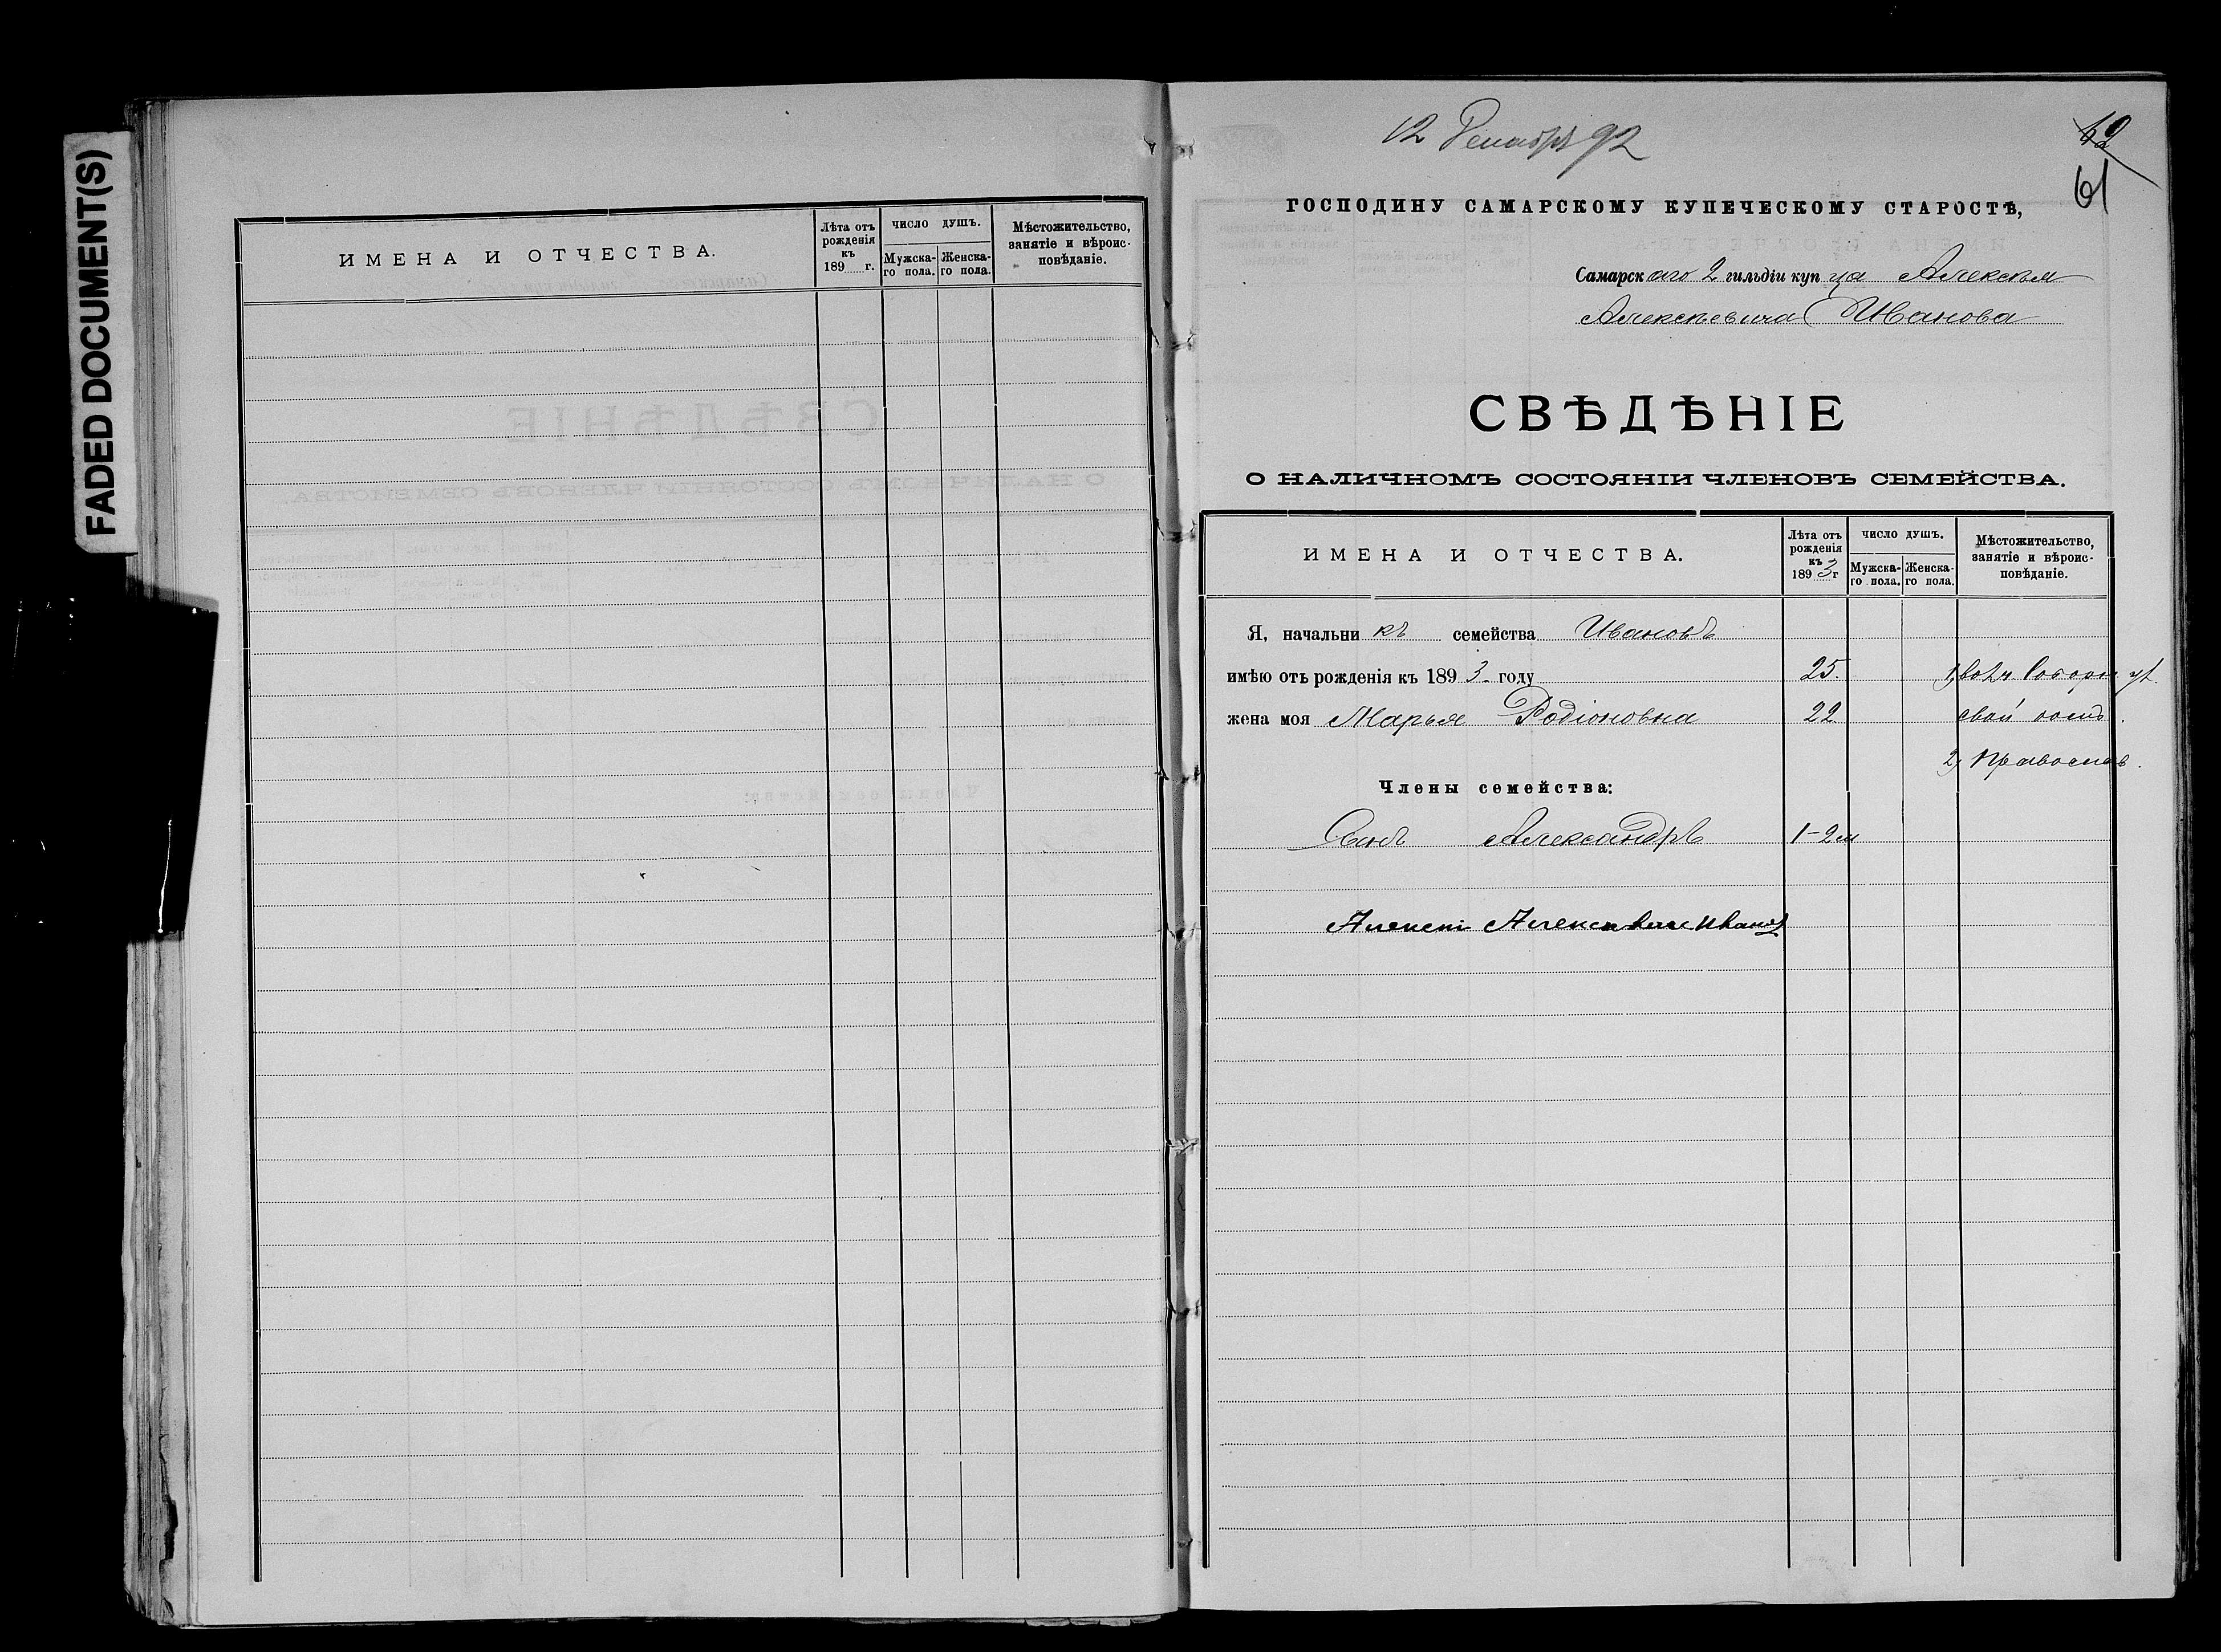 FADED DOCUMENT(S)
ИМЕНА И ОТЧЕСТВА.
Лѣта отъ рожденія къ 189 г.
число душъ.
Мужска-го пола.
Женска-го пола.
Мѣстожительство, занятіе и вѣроис-повѣданіе.
12 Декабря 92
62
61
ГОСПОДИНУ САМАРСКОМУ КУПЕЧЕСКОМУ СТАРОСТѢ,
Самарскаго 2 гильдіи купца Алексѣя
Алексѣевича Иванова
СВѢДѢНІЕ
О НАЛИЧНОМЪ СОСТОЯНІИ ЧЛЕНОВЪ СЕМЕЙСТВА.
ИМЕНА И ОТЧЕСТВА.
Лѣта отъ рожденія къ 1893 г
число душъ.
Мужска-го пола.
Женска-го пола.
Мѣстожительство, занятіе и вѣроис-повѣданіе.
Я, начальникъ семейства Ивановъ
имѣю отъ рожденія къ 1893 году 25. 1, во 2 ч
жена моя Марья Родіоновна 22 свой домъ.
2, Православ.
Члены семейства:
Сынъ Александръ 1-2 м
Алексѣй Алексѣевичъ Ивановъ